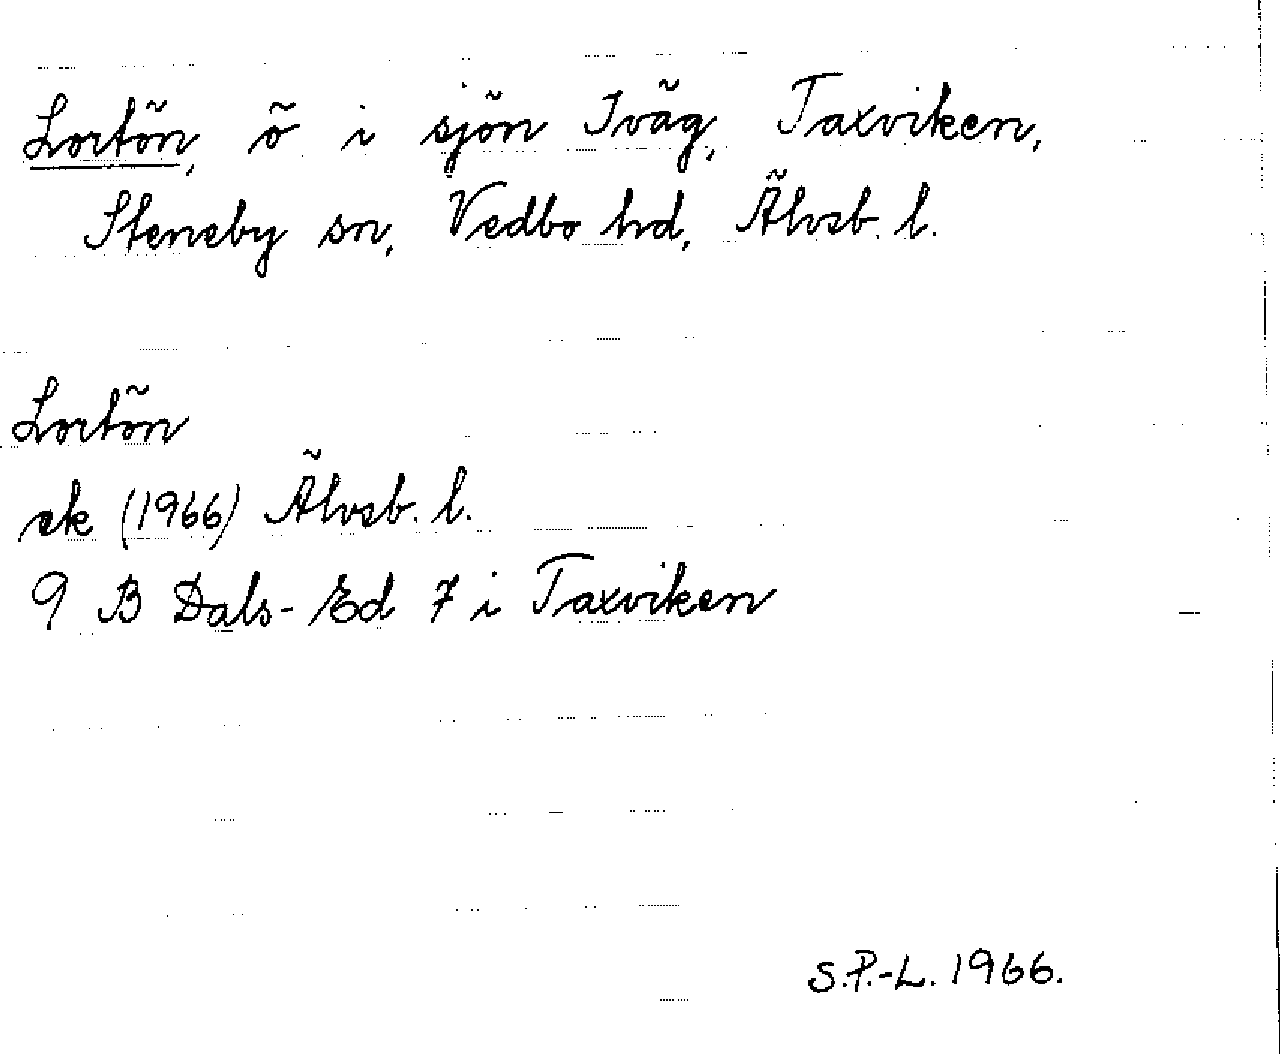 Lortön, ö i sjön Iväg, Taxviken,
Steneby sn, Vedbo hd, Älvsb. l.
Lortön
ek (1966) Älvsb. l.
9 B Dals-Ed 7 i Taxviken
S.P.-L. 1966.